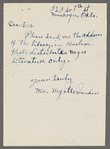 Muskogee, Okla.
Dear Sir,
Please send me the address
of The Library in Harlem
that distributes negro
literature only.
Yours truly
Mrs. Myrtle